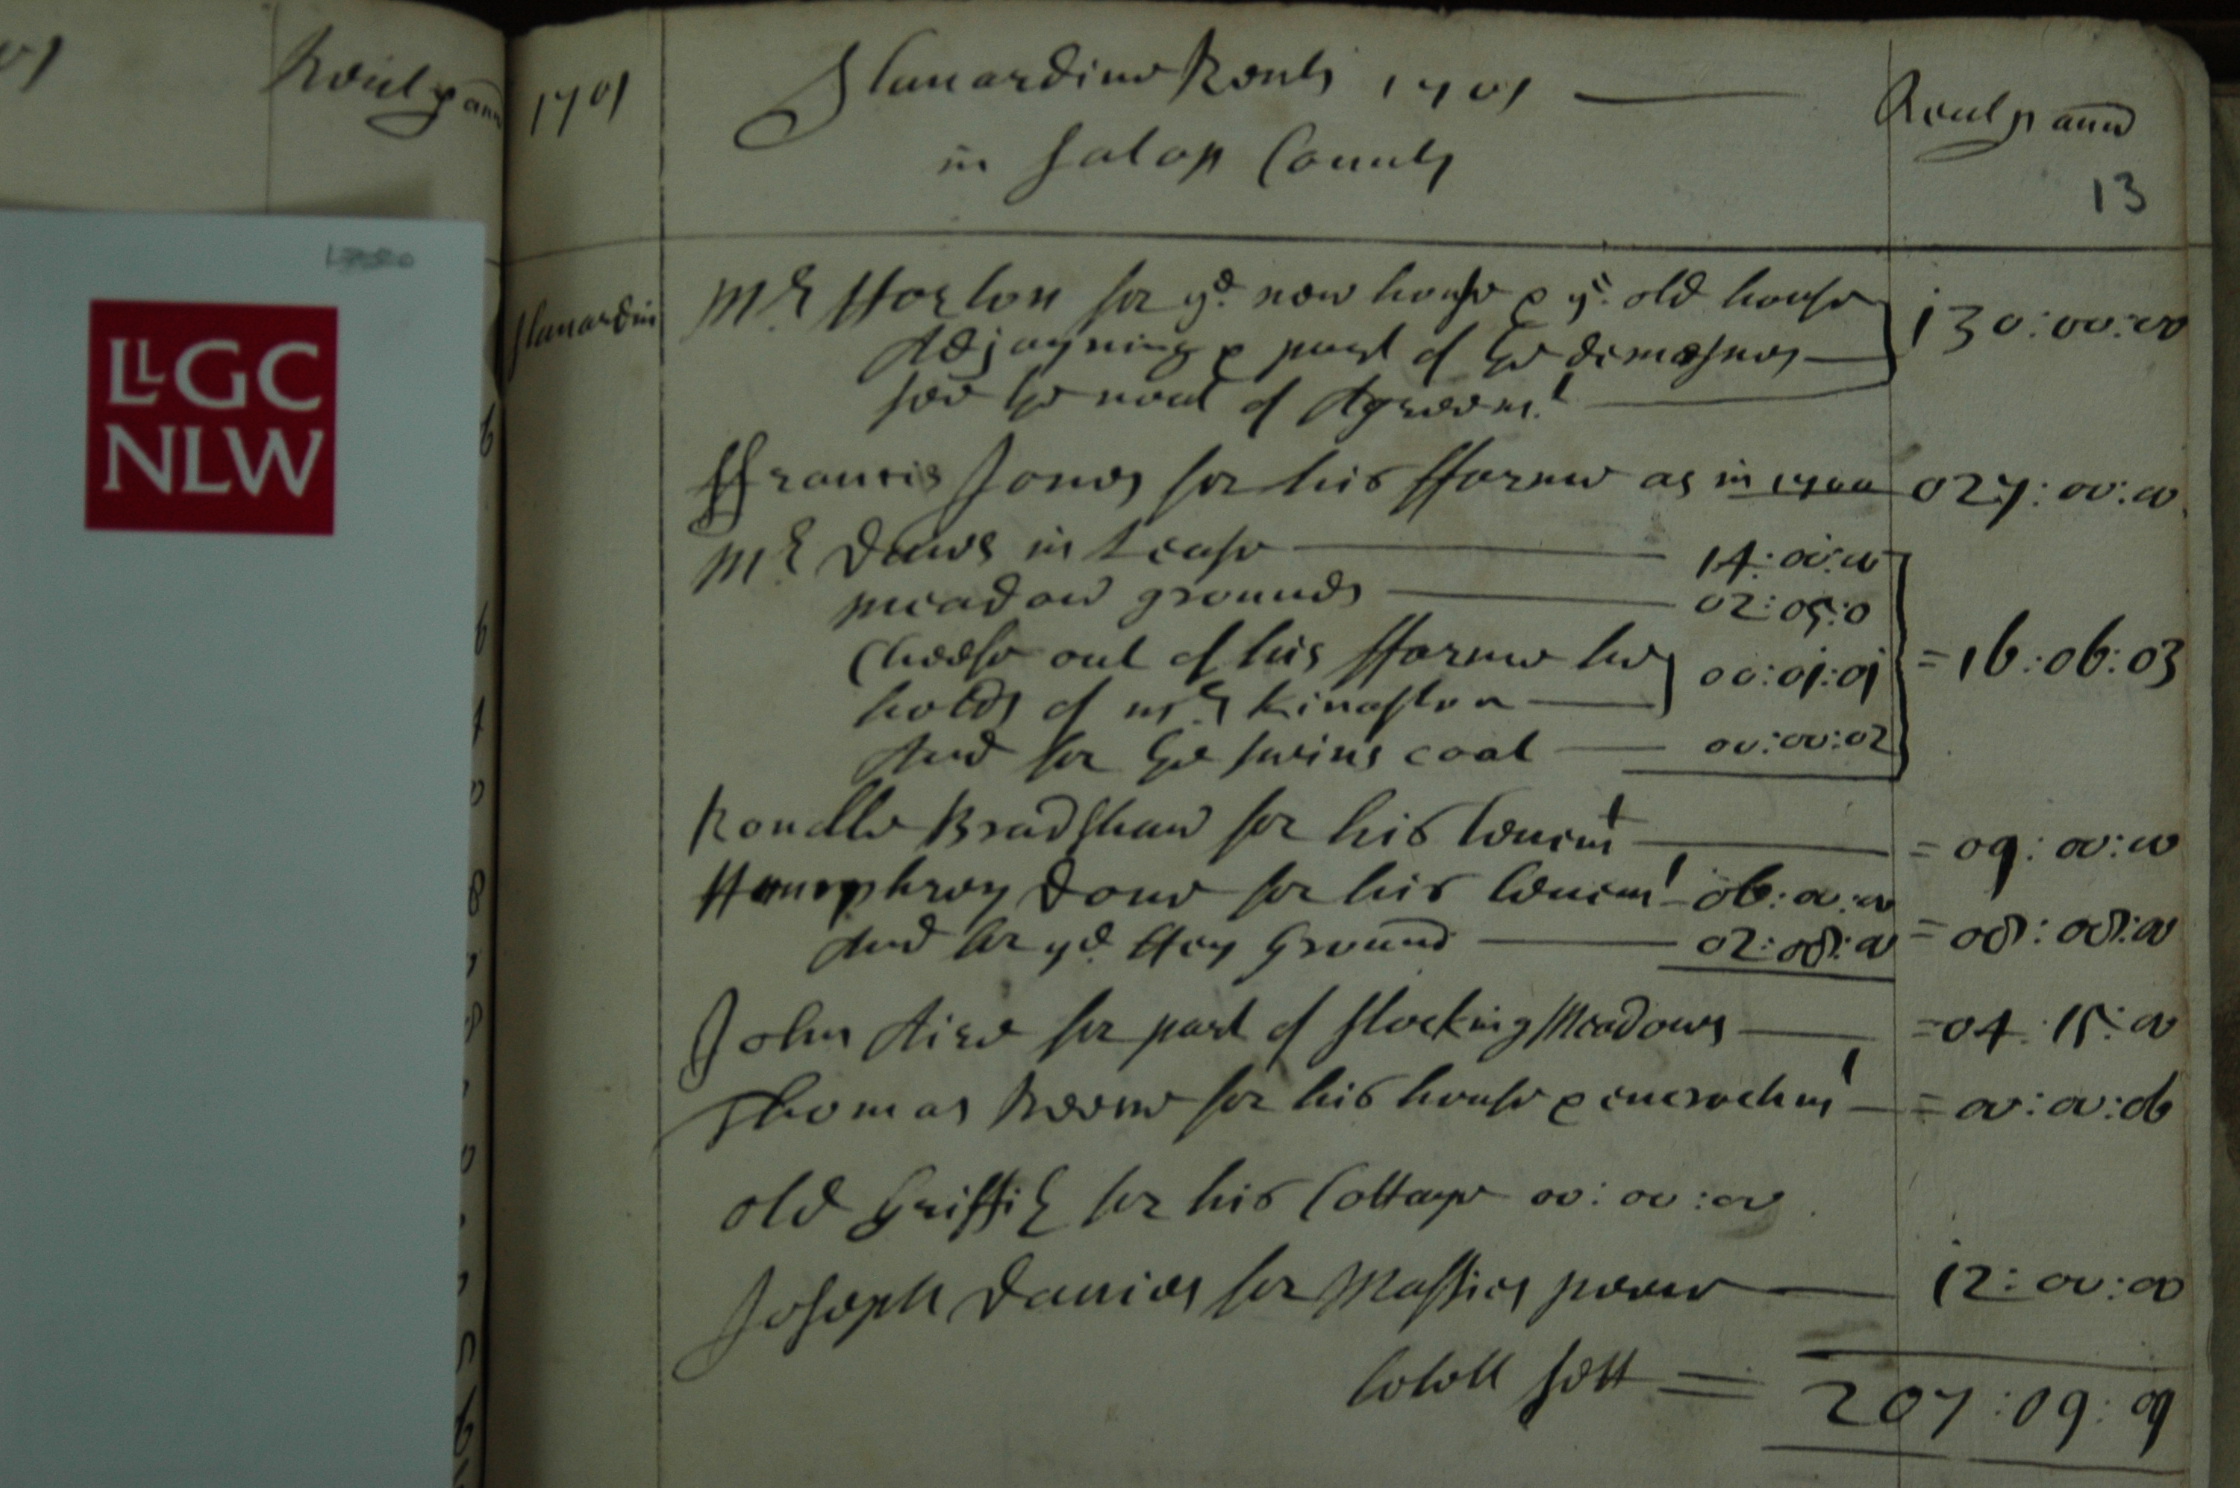 Rent p ann
1701
Stanardine Rents 1701
in Salop County
Rent p ann
13
LLGC
NLW
Stanardin
Mr Horton for ye new house & ye old house
Adjoyning & part of the demesnes 130:00:00
see the noat of Agreemt
ffrancis Jones for his fforme as in 1700 027:00:00
Mr in Lease 14:00:00
meadow grounds 02:05:0
Cheese out of his fforme he 00:01:01 =16:06:03
holds of mr Kinaston
And for the swins coat 00:00:02
Rondle Bradshaw for his tenemt =09:00:00
Humphrey Done for his tenemt 06:00:00
And for ye Hey Ground 02:08:00 =08:08:00
John for part of Stocking Meadows =04:15:00
Thomas for his house & encrochmt =00:00:06
old Griffith for his Cottage 00:00:00
Joseph Davies for Massies peece 12:00:00
totall sett = 207:09:09